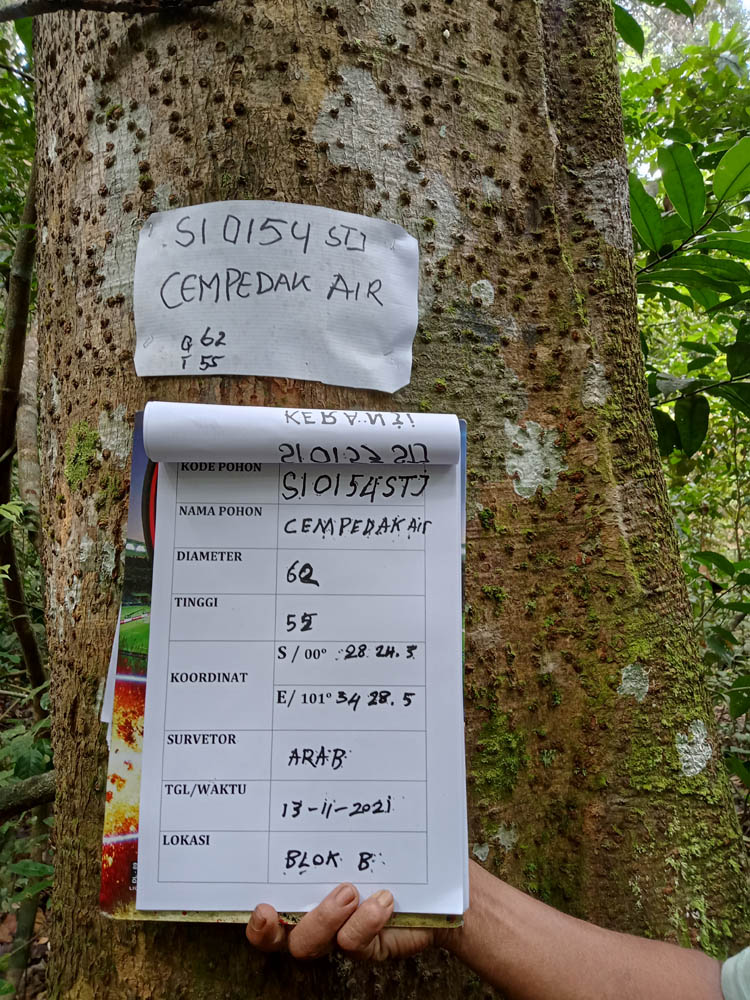 S10154 STJ
CEMPEDAK AIR
62
T 55
KERANJI
S10153 STJ
KODE POHON S10154STJ
NAMA POHON CEMPEDAK Air
DIAMETER 62
TINGGI 55
KOORDINAT S / 00° 28 24.3
E/ 101° 34 28.5
SURVETOR ARAB
TGL/WAKTU 13-11-2021
LOKASI BLOK B